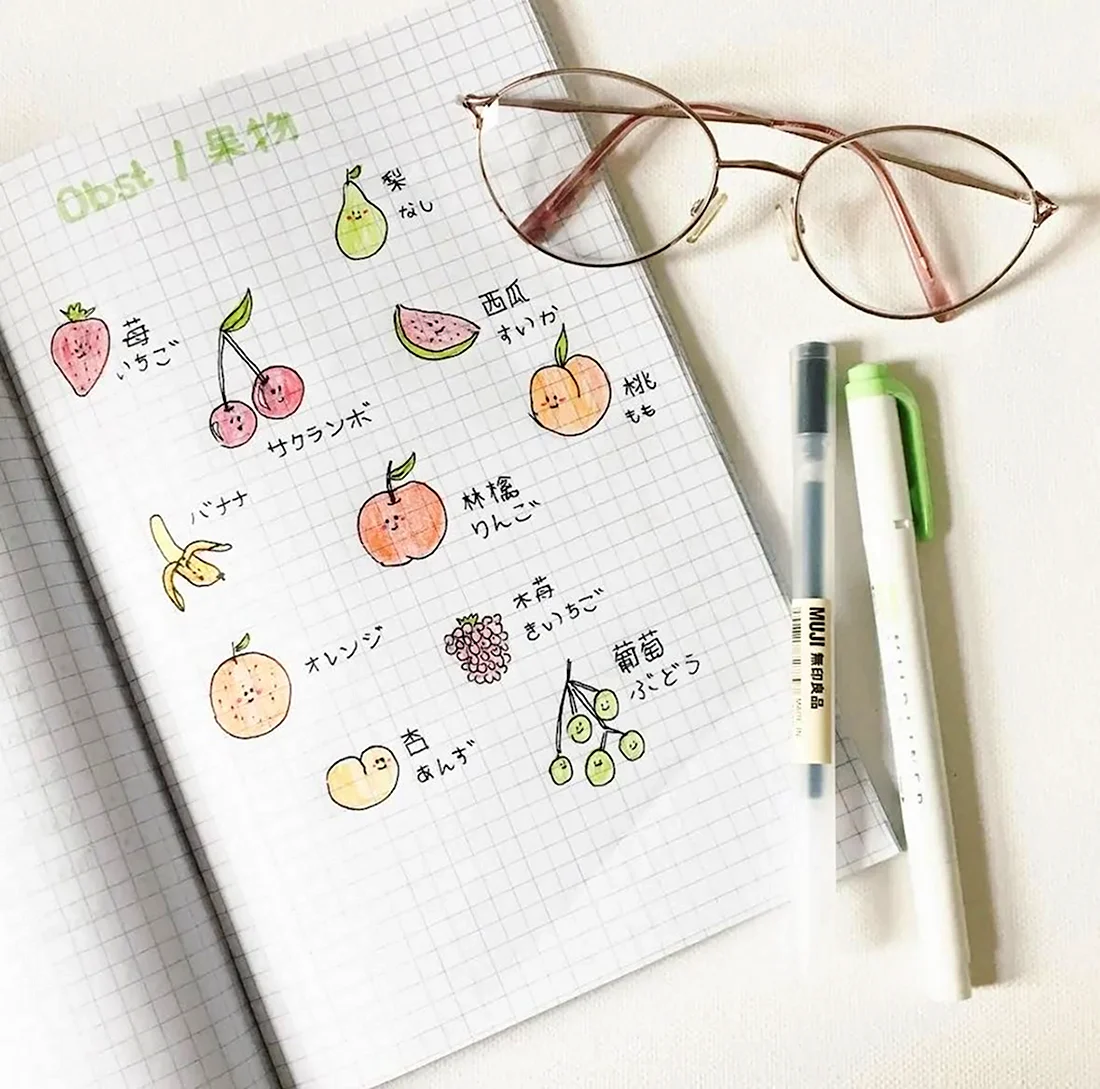 Obst / 果物
梨
なし
苺
いちご
西瓜
すいか
サクランボ
桃
もも
バナナ
林檎
りんご
木苺
きいちご
オレンジ
葡萄
ぶどう
杏
あんず
MUJI 無印良品